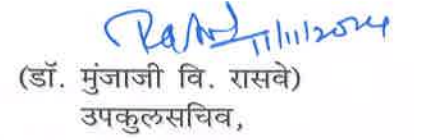 11/11/2024
(डॉ. मुंजाजी वि. रासवे)
उपकुलसचिव,